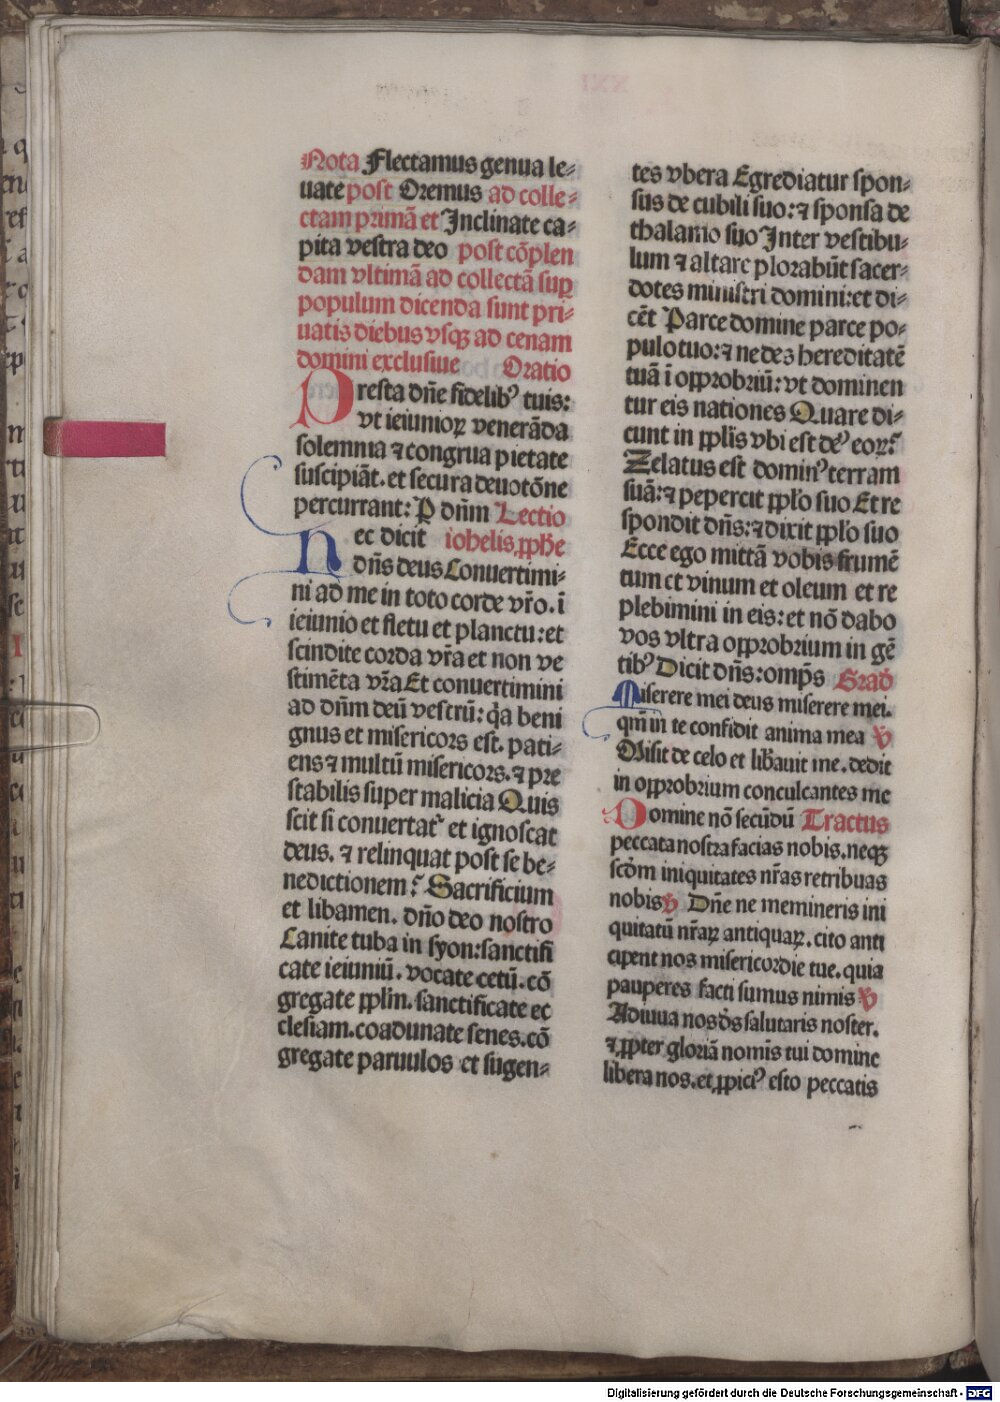 Nota Flectamus genua le⸗
uate post Oremus ad colle⸗
ctam primā et Inclinate ca⸗
pita vestra deo post cōplen
dam vltimā ad collectā suꝑ
populum dicenda sunt pri⸗
uatis diebus vsqꝫ ad cenam
domini exclusiue Oratio
Presta dn̄e fidelibꝰ tuis:
vt ieiunioꝝ venerāda
solemnia ⁊ congrua pietate
suscipiāt. et secura deuotōne
percurrant: P dn̄m Lectio
Hec dicit iohelis ꝓph̄e
dn̄s deus Conuertimi⸗
ni ad me in toto corde vr̄o. ī
ieiunio et fletu et planctu: et
scindite corda vr̄a et non ve
stimēta vr̄a Et conuertimini
ad dn̄m deū vestrū: q̄a beni
gnus et misericors est. pati⸗
ens ⁊ multū misericors. ⁊ pre
stabilis super malicia Quis
scit si conuertatᷣ et ignoscat
deus. ⁊ relinquat post se be⸗
nedictionem? Sacrificium
et libamen. dn̄o deo nostro
Canite tuba in syon: sanctifi
cate ieiuniū. vocate cetū. cō
gregate ppl̄m. sanctificate ec
clesiam. coadunate senes. cō
gregate paruulos et sugen⸗
tes vbera Egrediatur spon⸗
sus de cubili suo: ⁊ sponsa de
thalamo suo Inter vestibu⸗
lum ⁊ altare plorabūt sacer⸗
dotes ministri domini: et di⸗
cēt Parce domine parce po⸗
pulo tuo: ⁊ ne des hereditatē
tuā ī opprobriū: vt dominen
tur eis nationes Quare di⸗
cunt in ppl̄is vbi est deꝰ eoꝝ?
Zelatus est dominꝰ terram
suā: ⁊ pepercit ppl̄o suo Et re
spondit dn̄s: ⁊ dixit ppl̄o suo
Ecce ego mittā vobis frumē
tum et vinum et oleum et re
plebimini in eis: et nō dabo
vos vltra opprobrium in gē
tibꝰ Dicit dn̄s: omp̄s Grad̄
Miserere mei deus miserere mei.
qm̄ in te confidit anima mea ℣
Misit de celo et lib̄auit me. dedit
in opprobrium conculcantes me
Domine nō secūdū Tractus
peccata nostra facias nobis. neqꝫ
scd̄m iniquitates nr̄as retribuas
nobis ℣ Dn̄e ne memineris ini
quitatū nr̄aꝝ antiquaꝝ. cito anti
cipent nos misericordie tue. quia
pauperes facti sumus nimis ℣
Adiuua nos dūs salutaris noster.
⁊ ꝓpter gloriā nomīs tui domine
libera nos. et ꝓpiciꝰ esto peccatis
Digitalisierung gefördert durch die Deutsche Forschungsgemeinschaft - DFG